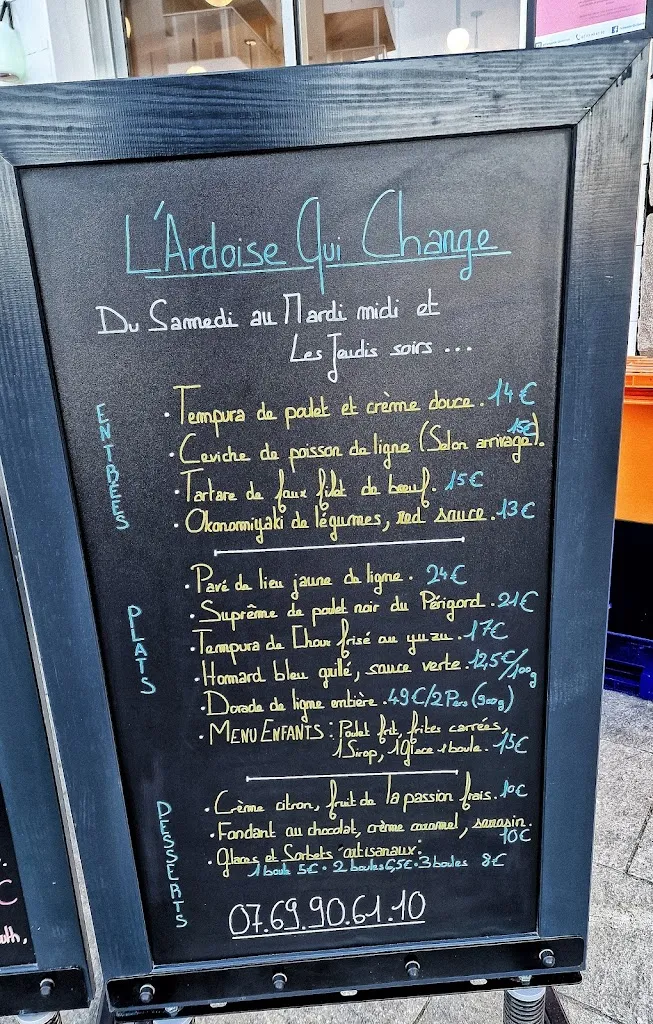 L'Ardoise Qui Change
Du Samedi au Mardi midi et
Les Jeudis soirs ...
ENTRÉES
· Tempura de poulet et crème douce. 14€
· Ceviche de poisson de ligne (Selon arrivage). 15€
· Tartare de faux filet de bœuf. 15€
· Okonomiyaki de légumes, red sauce. 13€
PLATS
· Pavé de lieu jaune de ligne. 24€
· Suprême de poulet noir du Périgord. 21€
· Tempura de Choux frisé au yuzu. 17€
· Homard bleu grillé, sauce verte. 12,5€/100g
· Dorade de ligne entière. 49€/2Pers (900g)
· MENU ENFANTS : Poulet frit, frites carrées,
1 Sirop, 1 glace 1 boule. 15€
DESSERTS
· Crème citron, fruit de la passion frais. 10€
· Fondant au chocolat, crème caramel, sarrasin.
10€
· Glaces et Sorbets artisanaux:
1 boule 5€ · 2 boules 6,5€ · 3 boules 8€
07.69.90.61.10